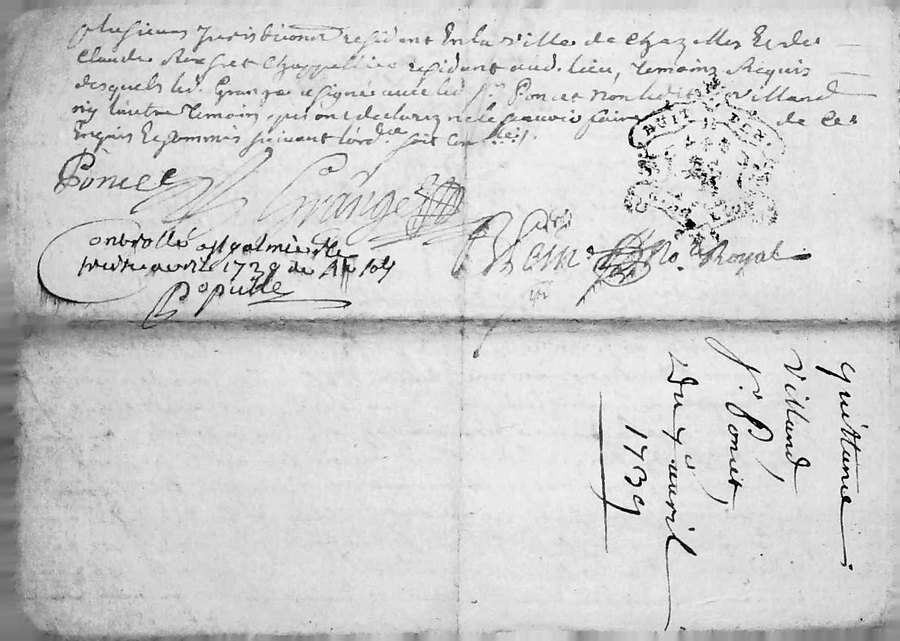 plusieurs Jurisdiconr residant En la ville de Chazelles Et de
Claude Chappellier residant aud. lieu, Temoins Requis
desquels led. Granga a signé avec led. Sr. Poncet Non ledit Villand
ny lautre Temoin qui ont declarez ne le scavoir faire de ce
Enquis Et sommés suivant lord.ce
Poncet
Grange
no. Royal
Controllé a St galmier le
avril 1739
quittance
Villand,
Sr. Poncet,
Du 7 avril
1739